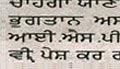 ਚਾਹੀਗਾ ਯਾਨ
ਭੁਗਤਾਨ ਅਸ
ਆਈ.ਐਸ.ਪੀ
ਵੀ ਪੇਸ਼ ਕਰ ਰ